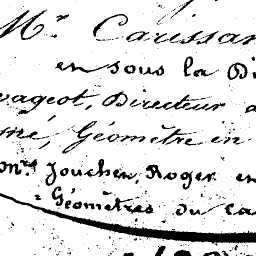 Mr. Carissan
en sous la Di
vageot, Directeur d
mé, Géomètre en
Mrs. Jouchen, Roger en
= Géomètres du Ca